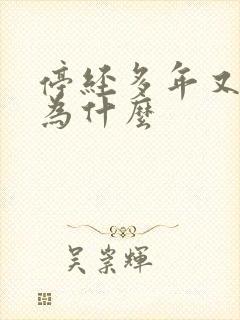 停經多年又
為什麼
吳崇輝